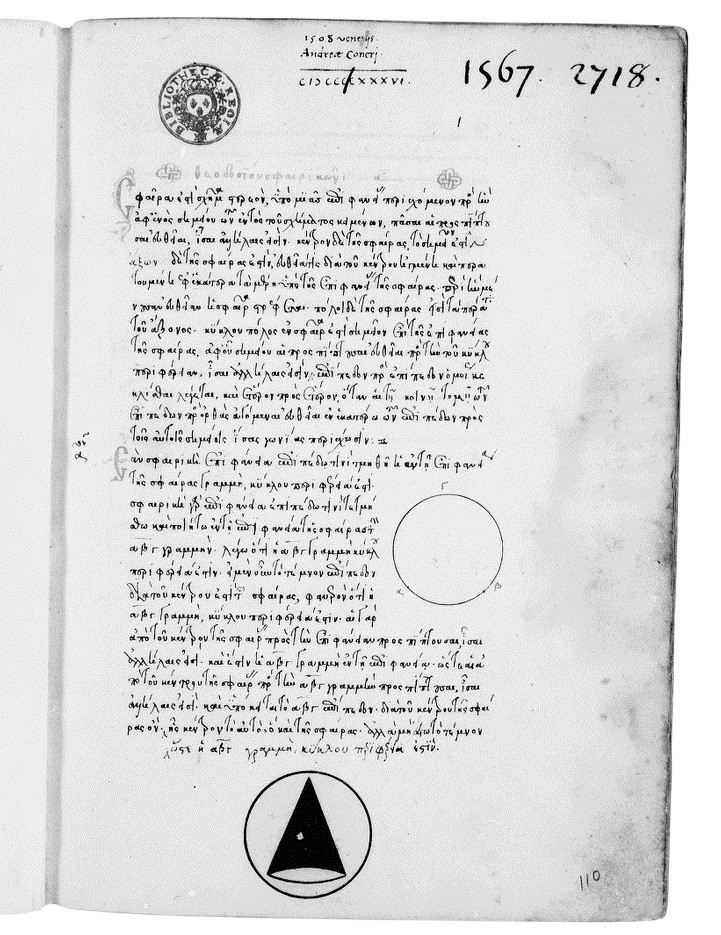 1508 venetijs.
Andreæ Coneri.
CIƆCCCCXXXVI.
1567. 2718.
1
BIBLIOTHECÆ REGIÆ
θεοδοσίου σφαιρικῶν: α
σφαῖρα ἐστὶ σχῆμα στερεὸν, ὑπὸ μιᾶς ἐπιφανείας περιεχόμενον πρὸς ἣν
ἀφ' ἑνὸς σημείου τῶν ἐντὸς τοῦ σχήματος κειμένων, πᾶσαι αἱ προσπίπτου
σαι εὐθεῖαι, ἴσαι ἀλλήλαις εἰσίν. κέντρον δὲ τῆς σφαίρας, τὸ σημεῖόν ἐστιν
ἄξων δὲ τῆς σφαίρας ἐστὶν, εὐθεῖά τις διὰ τοῦ κέντρου ἠγμένη καὶ περα
τουμένη ἐφ' ἑκάτερα τὰ μέρη ὑπὸ τῆς ἐπιφανείας τῆς σφαίρας. περὶ ἣν μέ
νουσαν εὐθεῖαν ἡ σφαῖρα στρέφεται. πόλοι δὲ τῆς σφαίρας εἰσὶ τὰ πέρατα
τοῦ ἄξονος. κύκλου πόλος ἐν σφαίρᾳ ἐστὶ σημεῖον ἐπὶ τῆς ἐπιφανείας
τῆς σφαίρας, ἀφ' οὗ σημείου αἱ προσπίπτουσαι εὐθεῖαι πρὸς τὴν τοῦ κύκλου
περιφέρειαν, ἴσαι ἀλλήλαις εἰσίν. ἐπίπεδον πρὸς ἐπίπεδον ὁμοίως κε
κλίσθαι λέγεται, καὶ ἕτερον πρὸς ἕτερον, ὅταν αἱ τῇ κοινῇ τομῇ τῶν
ἐπιπέδων πρὸς ὀρθὰς ἀγόμεναι εὐθεῖαι ἐν ἑκατέρῳ τῶν ἐπιπέδων πρὸς
τοῖς αὐτοῖς σημείοις ἴσας γωνίας περιέχωσιν:
ἐὰν σφαιρικὴ ἐπιφάνεια ἐπιπέδῳ τινὶ τμηθῇ ἡ ἐν τῇ ἐπιφανείᾳ
τῆς σφαίρας γραμμὴ, κύκλου περιφέρειά ἐστι.
σφαιρικὴ γὰρ ἐπιφάνεια ἐπιπέδῳ τινὶ τετμή
σθω καὶ ποιείτω ἐν τῇ ἐπιφανείᾳ τῆς σφαίρας τὴν
αβγ γραμμήν. λέγω ὅτι ἡ αβγ γραμμὴ κύκλου
περιφέρειά ἐστιν. εἰ μὲν οὖν τὸ τέμνον ἐπίπεδον
διὰ τοῦ κέντρου ἐστὶ τῆς σφαίρας, φανερὸν ὅτι ἡ
αβγ γραμμὴ, κύκλου περιφέρειά ἐστιν. αἱ γὰρ
ἀπὸ τοῦ κέντρου τῆς σφαίρας πρὸς τὴν ἐπιφάνειαν προσπίπτουσαι, ἴσαι
ἀλλήλαις εἰσί. καὶ ἔστιν ἡ αβγ γραμμὴ ἐν τῇ ἐπιφανείᾳ. ὥστε αἱ ἀ
πὸ τοῦ κέντρου τῆς σφαίρας πρὸς τὴν αβγ γραμμὴν προσπίπτουσαι, ἴσαι
ἀλλήλαις εἰσί.
ἀλλὰ μὴ ἔστω τὸ τέμνον
ὥστε ἡ αβγ γραμμὴ, κύκλου περιφέρεια ἐστίν.
γ
α
β
110